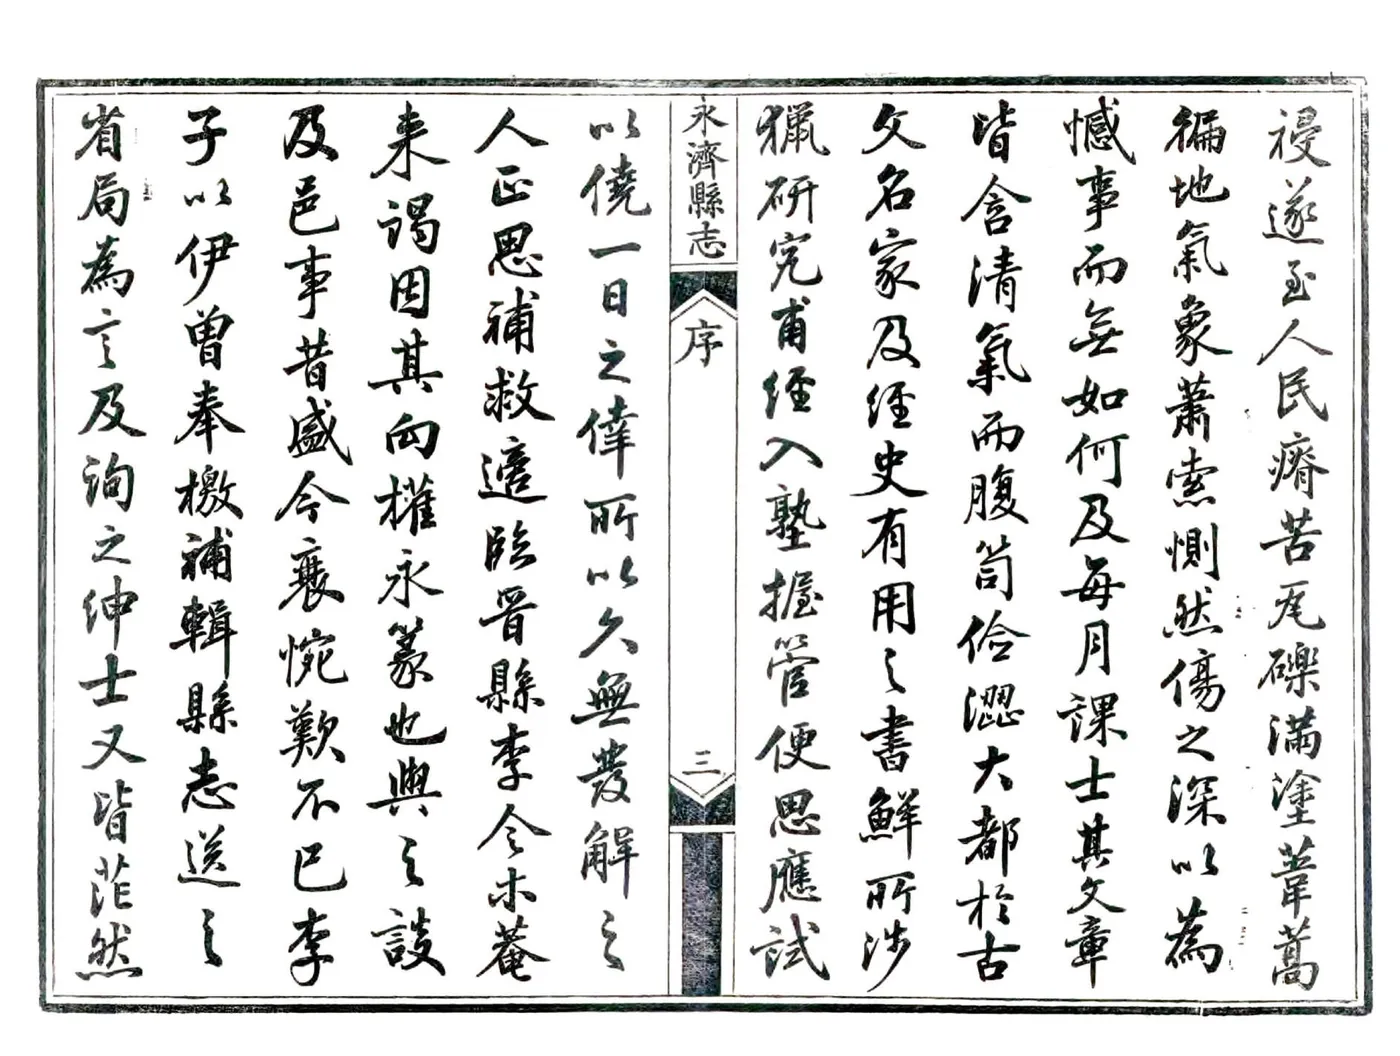 祲遂至人民瘠苦瓦礫滿塗葦蒿
徧地氣象蕭索惻然傷之深以為
憾事而無如何及每月課士其文章
皆含清氣而腹笥儉澀大都於古
文名家及經史有用之書鮮所涉
獵研究甫經入塾握管便思應試
永濟縣志
序
三
以僥一日之倖所以久無發解之
人正思補救適臨晉縣李令木菴
來謁因其向權永篆也與之談
及邑事昔盛今衰惋歎不已李
子以伊曾奉檄補輯縣志送之
省局為言及詢之紳士又皆茫然